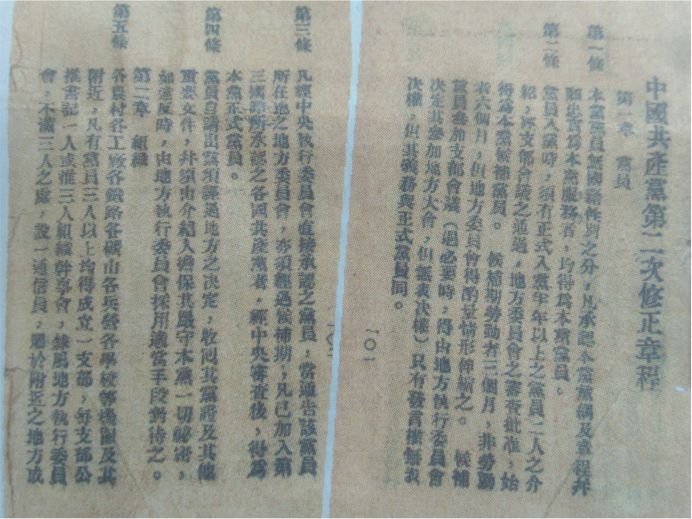 中國共產黨第二次修正章程
第一章 黨員
第一條 本黨黨員無國籍性別之分，凡承認本黨黨綱及章程幷
願忠實爲本黨服務者，均得爲本黨黨員。
第二條 黨員入黨時，須有正式入黨半年以上之黨員二人之介
紹，經支部會議之通過，地方委員會之審查批准，始
得爲本黨候補黨員。候補期勞動者三個月，非勞動
者六個月，但地方委員會得酌量情形伸縮之。候補
黨員參加支部會議（遇必要時，得由地方執行委員會
決定其參加地方大會，但無表決權）只有發言權無表
決權，但其義務與正式黨員同。
一〇一
第三條 凡經中央執行委員會直接承認之黨員，當通告該黨員
所在地之地方委員會，亦須經過候補期，凡已加入第
三國際所承認之各國共產黨者，經中央審查後，得爲
本黨正式黨員。
第四條 黨員自請出黨須經過地方之決定，收回其黨證及其他
重要文件，幷須由介紹人擔保其嚴守本黨一切祕密，
如違反時，由地方執行委員會採用適當手段對待之。
第二章 組織
第五條 各農村各工廠各鐵路各礦山各兵營各學校等機關及其
附近，凡有黨員三人以上均得成立一支部，每支部公
推書記一人或推三人組織幹事會，隸屬地方執行委員
會，不滿三人之處，設一通信員，屬於附近之地方或